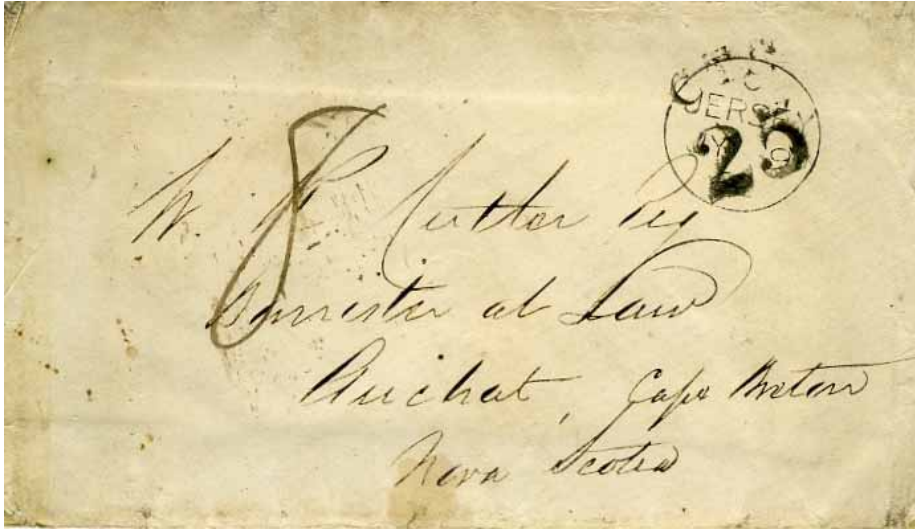 JERSEY
25
8
W. R. Cutler Esq
Barrister at Law
Arichat, Cape Breton
Nova Scotia